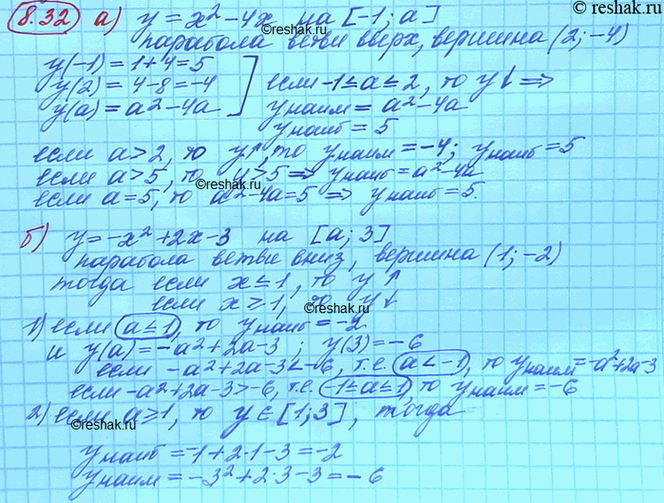 © reshak.ru
8.32 а) y = x² - 4x на [-1; a]
парабола ветви вверх, вершина (2; -4)
y(-1) = 1+4 = 5
y(2) = 4-8 = -4
y(a) = a² - 4a
если -1 ≤ a ≤ 2, то y↓ ⇒
yнаим = a² - 4a
yнаиб = 5
если a > 2, то y↑, то yнаим = -4; yнаиб = 5
если a > 5, то y > 5 ⇒ yнаиб = a² - 4a
если a = 5, то a² - 4a = 5 ⇒ yнаиб = 5.
б) y = -x² + 2x - 3 на [a; 3]
парабола ветви вниз, вершина (1; -2)
тогда если x ≤ 1, то y↑
если x ≥ 1, то y↓
1) если a ≤ 1, то yнаиб = -2
и y(a) = -a² + 2a - 3; y(3) = -6
если -a² + 2a - 3 < -6, т.е. a < -1, то yнаим = -a² + 2a - 3
если -a² + 2a - 3 > -6, т.е. -1 ≤ a ≤ 1, то yнаим = -6
2) если a ≥ 1, то y ∈ [1; 3], тогда
yнаиб = -1 + 2·1 - 3 = -2
yнаим = -3² + 2·3 - 3 = -6
©reshak.ru
©reshak.ru
©reshak.ru
©reshak.ru